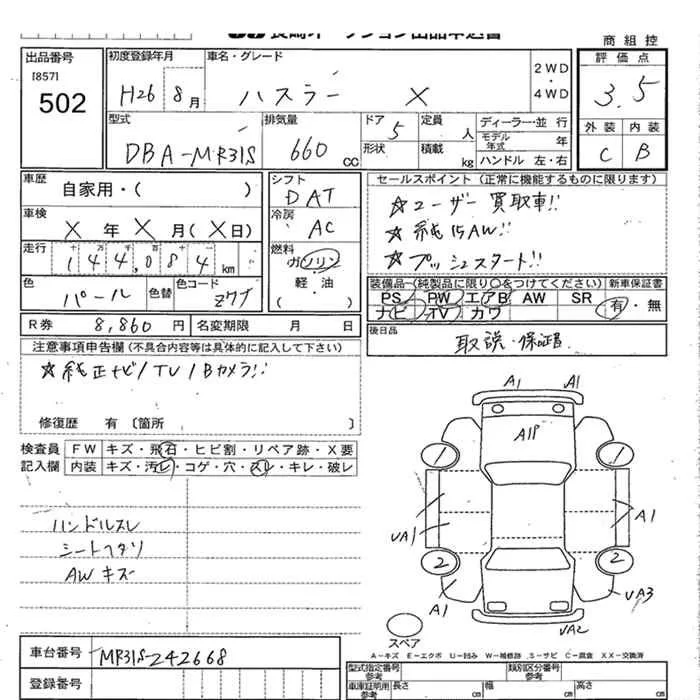 商組控
出品番号
[857]
502
初度登録年月
H26年8月
車名・グレード
ハスラー X
2WD
・
4WD
評価点
3.5
型式
DBA-MR31S
排気量
660cc
ドア
5
形状
定員
人
積載
kg
ディーラー・並行
モデル年式
年
ハンドル 左・右
外装
内装
C
B
車歴
自家用・( )
シフト
DAT
車検
X年X月(X日)
冷房
AC
走行
十万千百十
144,084km
燃料
ガソリン
・
軽・油
( )
色
パール
色替
色コード
Z7フ
セールスポイント(正常に機能するものに限ります)
☆ユーザー買取車!!
☆純15AW!!
☆プッシュスタート!!
装備品(純製品に限り○をつけてください)
新車保証書
PS PW エアB AW SR
ナビ TV カワ
有・無
R券 8,860円
名変期限 月 日
後日品
取説・保証書
注意事項申告欄(不具合内容等は具体的に記入して下さい)
☆純正ナビ/TV/Bカメラ!!
修復歴 有 〔箇所 〕
検査員
記入欄
FW キズ・飛石・ヒビ割・リペア跡・X要
内装 キズ・汚レ・コゲ・穴・スレ・キレ・破レ
ハンドルスレ
シートヘタリ
AWキズ
A1 A1
A1P
1 1
UA1
A1
2 2
A1
UA3
UA2
スペア
A-キズ E-エクボ U-凹み W-補修跡 S-サビ C-腐食 XX-交換済
車台番号
MR31S-242668
登録番号
型式指定番号
参考
類別区分番号
参考
車庫証明用
参考
長さ cm 幅 cm 高さ cm